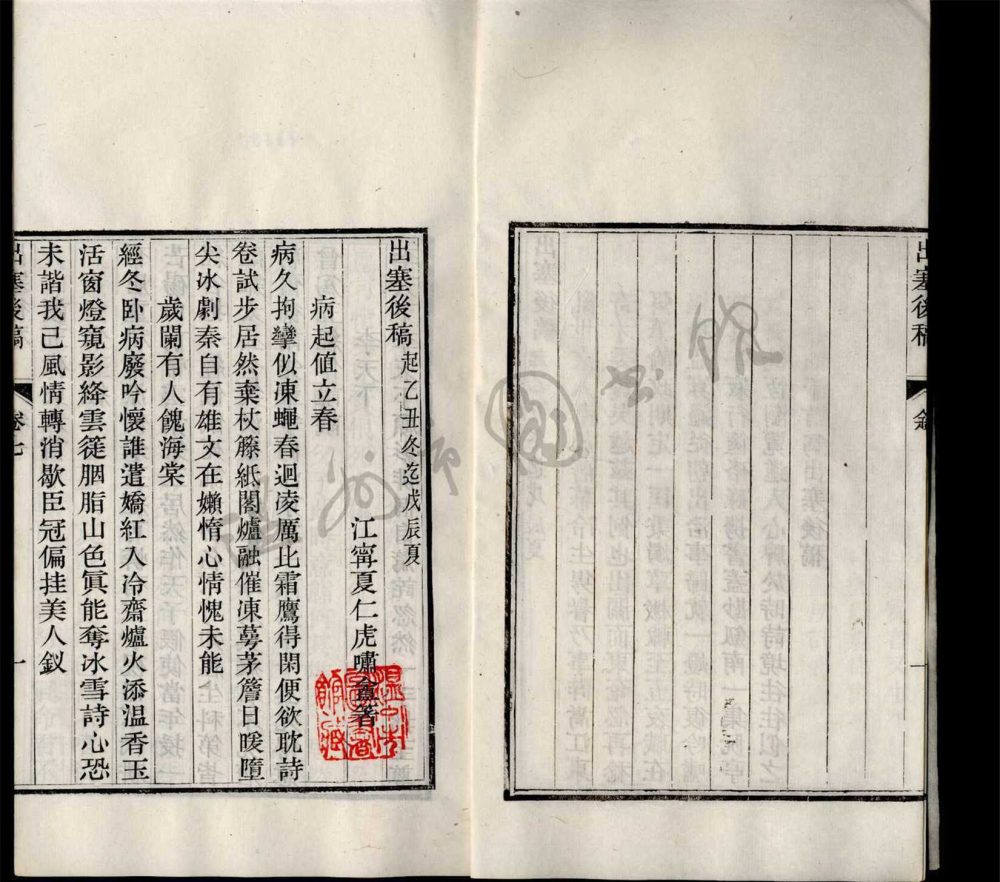 出塞後稿
敘
一
出塞後稿起乙丑冬迄戊辰夏
江甯夏仁虎嘯盦著
病起值立春
病久拘攣似凍蠅春迴凌厲比霜鷹得閑便欲耽詩
卷試步居然棄杖籐紙閣爐融催凍蕚茅簷日暖墮
尖冰劇秦自有雄文在嬾惰心情愧未能
歲闌有人餽海棠
經冬卧病廢吟懷誰遣嬌紅入冷齋爐火添温香玉
活窗燈窺影絳雲筵胭脂山色眞能奪冰雪詩心恐
未諧我已風情轉消歇臣冠偏挂美人釵
出塞後稿
卷七
一
温州市圖書館藏
温州市圖書館